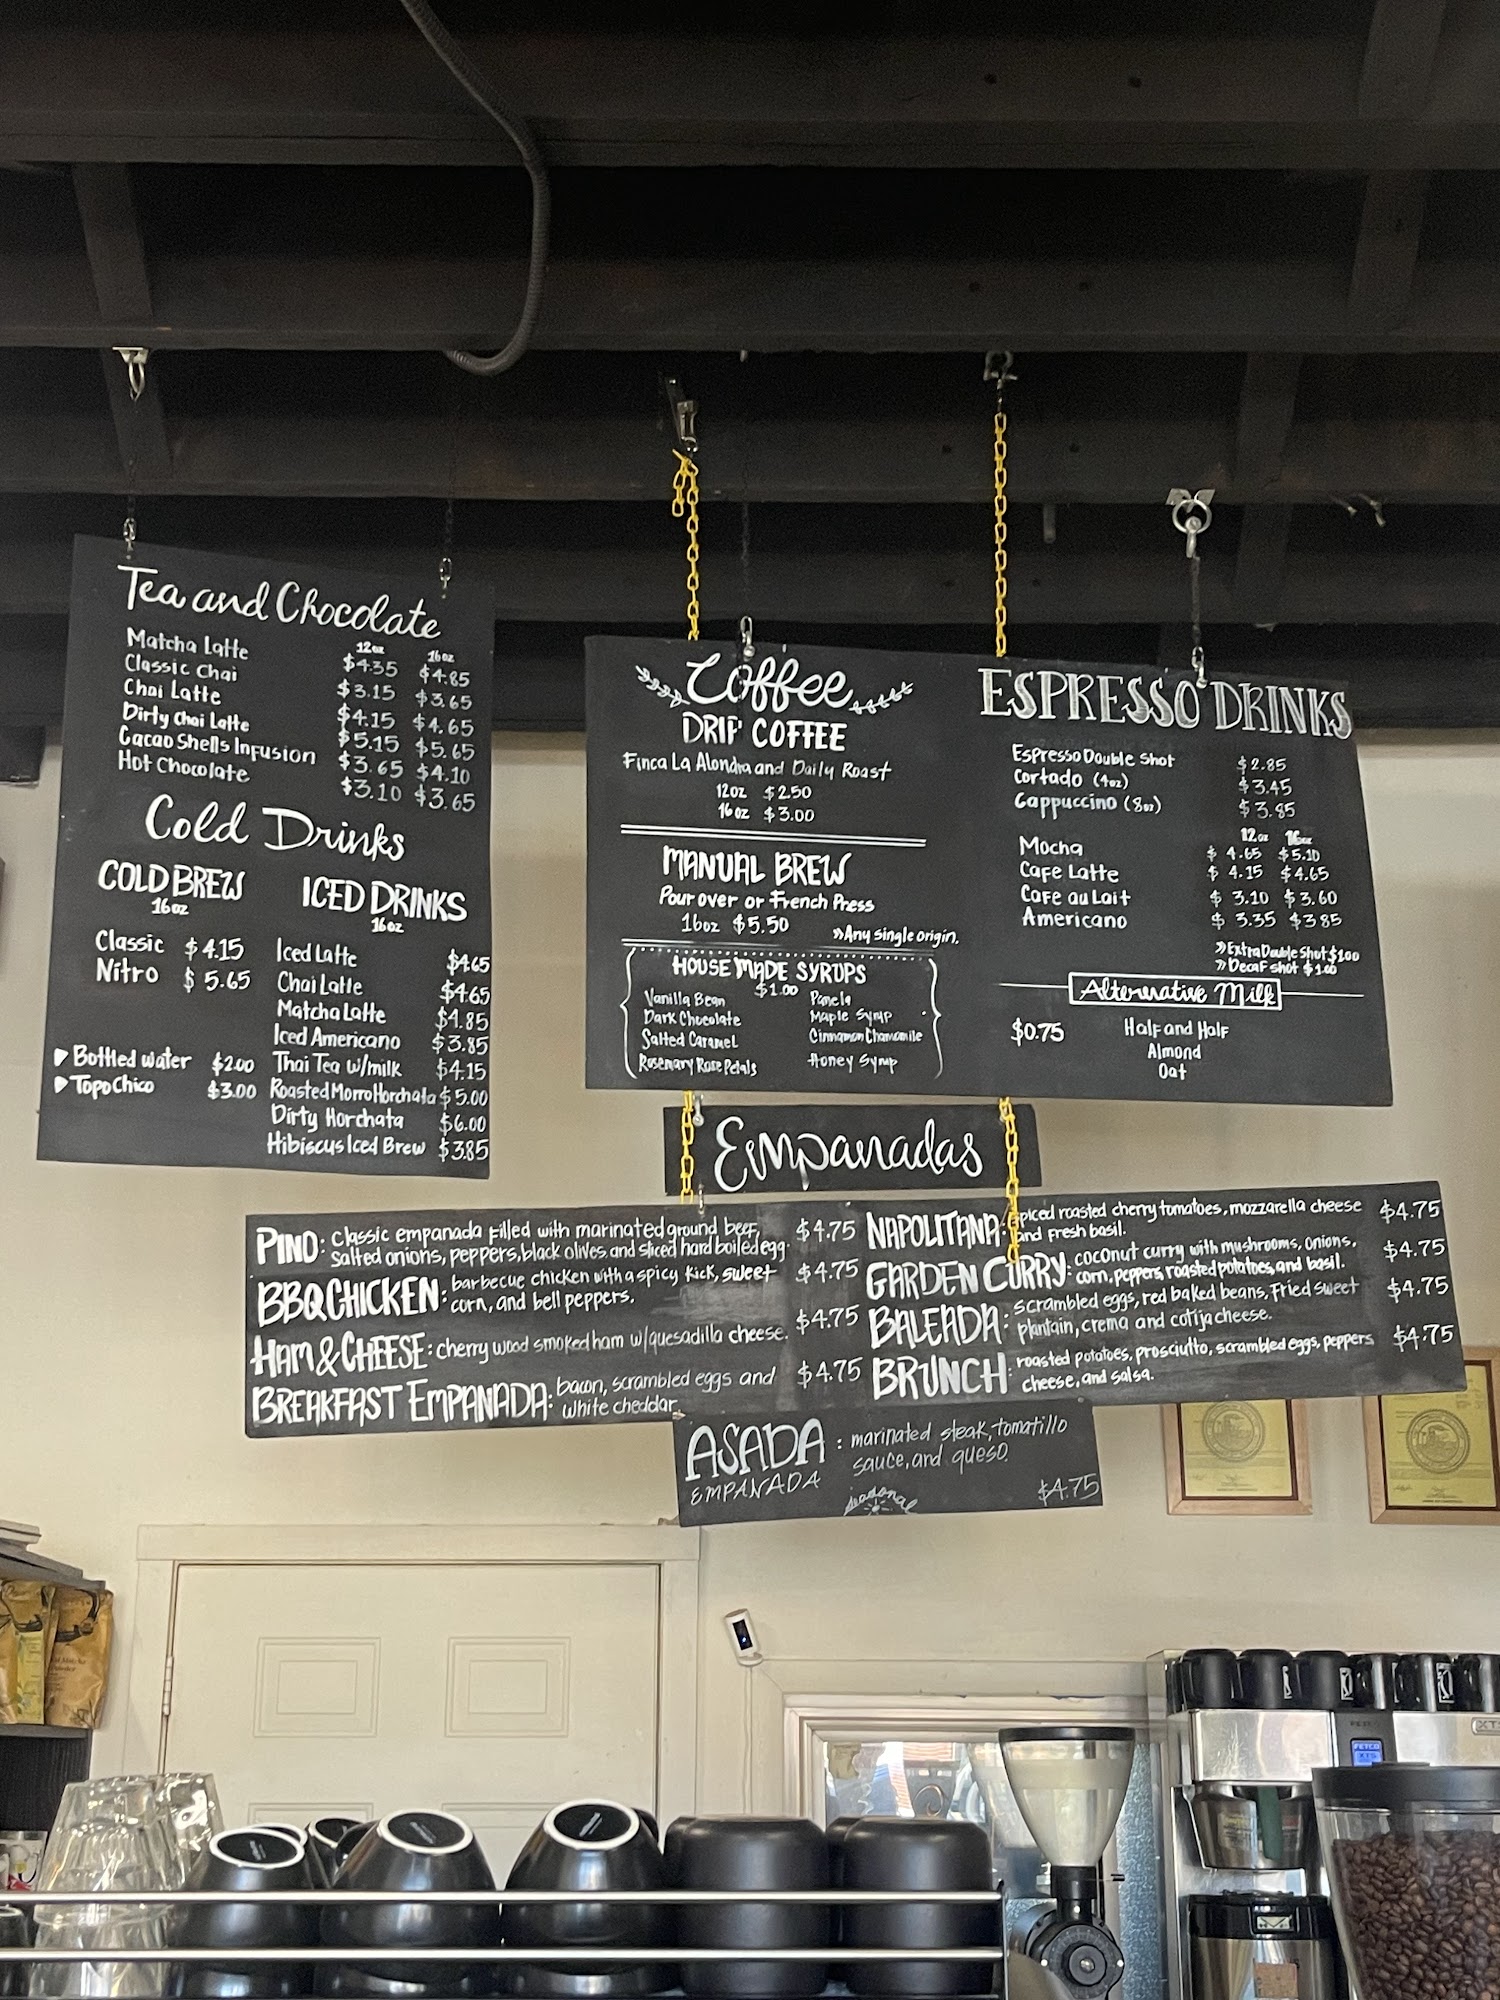 Tea and Chocolate
12oz 16oz
Matcha Latte $4.35 $4.85
Classic Chai $3.15 $3.65
Chai Latte $4.15 $4.65
Dirty Chai Latte $5.15 $5.65
Cacao Shells Infusion $3.65 $4.10
Hot Chocolate $3.10 $3.65
Cold Drinks
COLD BREW
16oz
Classic $4.15
Nitro $5.65
Bottled water $2.00
Topo Chico $3.00
ICED DRINKS
16oz
Iced Latte $4.65
Chai Latte $4.65
Matcha Latte $4.85
Iced Americano $3.85
Thai Tea w/milk $4.15
Roasted Morro Horchata $5.00
Dirty Horchata $6.00
Hibiscus Iced Brew $3.85
Coffee
DRIP COFFEE
Finca La Alondra and Daily Roast
12oz $2.50
16oz $3.00
MANUAL BREW
Pour over or French Press
16oz $5.50
»Any single origin.
HOUSE MADE SYRUPS
$1.00
Vanilla Bean Panela
Dark Chocolate Maple Syrup
Salted Caramel Cinnamon Chamomile
Rosemary Rose Petals Honey Syrup
ESPRESSO DRINKS
Espresso Double Shot $2.85
Cortado (4oz) $3.45
Cappuccino (8oz) $3.85
12oz 16oz
Mocha $4.65 $5.10
Cafe Latte $4.15 $4.65
Cafe au Lait $3.10 $3.60
Americano $3.35 $3.85
»Extra Double Shot $1.00
»Decaf shot $1.00
Alternative Milk
$0.75
Half and Half
Almond
Oat
Empanadas
PINO: classic empanada filled with marinated ground beef,
salted onions, peppers, black olives and sliced hard boiled egg. $4.75
BBQ CHICKEN: barbecue chicken with a spicy kick, sweet
corn, and bell peppers. $4.75
HAM & CHEESE: cherry wood smoked ham w/quesadilla cheese. $4.75
BREAKFAST EMPANADA: bacon, scrambled eggs and
white cheddar. $4.75
NAPOLITANA: spiced roasted cherry tomatoes, mozzarella cheese
and fresh basil. $4.75
GARDEN CURRY: coconut curry with mushrooms, onions,
corn, peppers, roasted potatoes, and basil. $4.75
BALEADA: scrambled eggs, red baked beans, fried sweet
plantain, crema and cotija cheese. $4.75
BRUNCH: roasted potatoes, prosciutto, scrambled eggs, peppers
cheese, and salsa. $4.75
ASADA : marinated steak, tomatillo
EMPANADA sauce, and queso.
seasonal
$4.75
FETCO
XTS